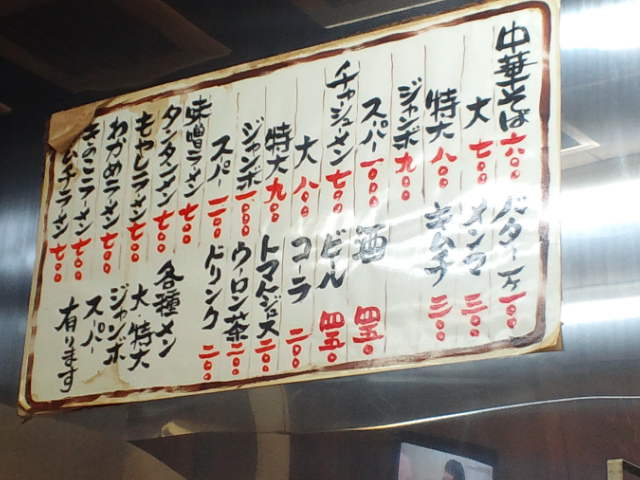 中華そば 六〇〇
大 七〇〇
特大 八〇〇
ジャンボ 九〇〇
スパー 一〇〇〇
チャーシュメン 七〇〇
大 八〇〇
特大 九〇〇
ジャンボ 一〇〇〇
スパー 一一〇〇
味噌ラーメン 七〇〇
タンタンメン 七〇〇
もやしラーメン 七〇〇
わかめラーメン 七〇〇
きのこラーメン 七〇〇
キムチラーメン 七〇〇
バター一ケ 一〇〇
メンマ 三〇〇
キムチ 三〇〇
酒 四五〇
ビール 四五〇
コーラ 二〇〇
トマトジュース 二〇〇
ウーロン茶 二〇〇
ドリンク 二〇〇
各種メン
大・特大
ジャンボ
スパー
有ります